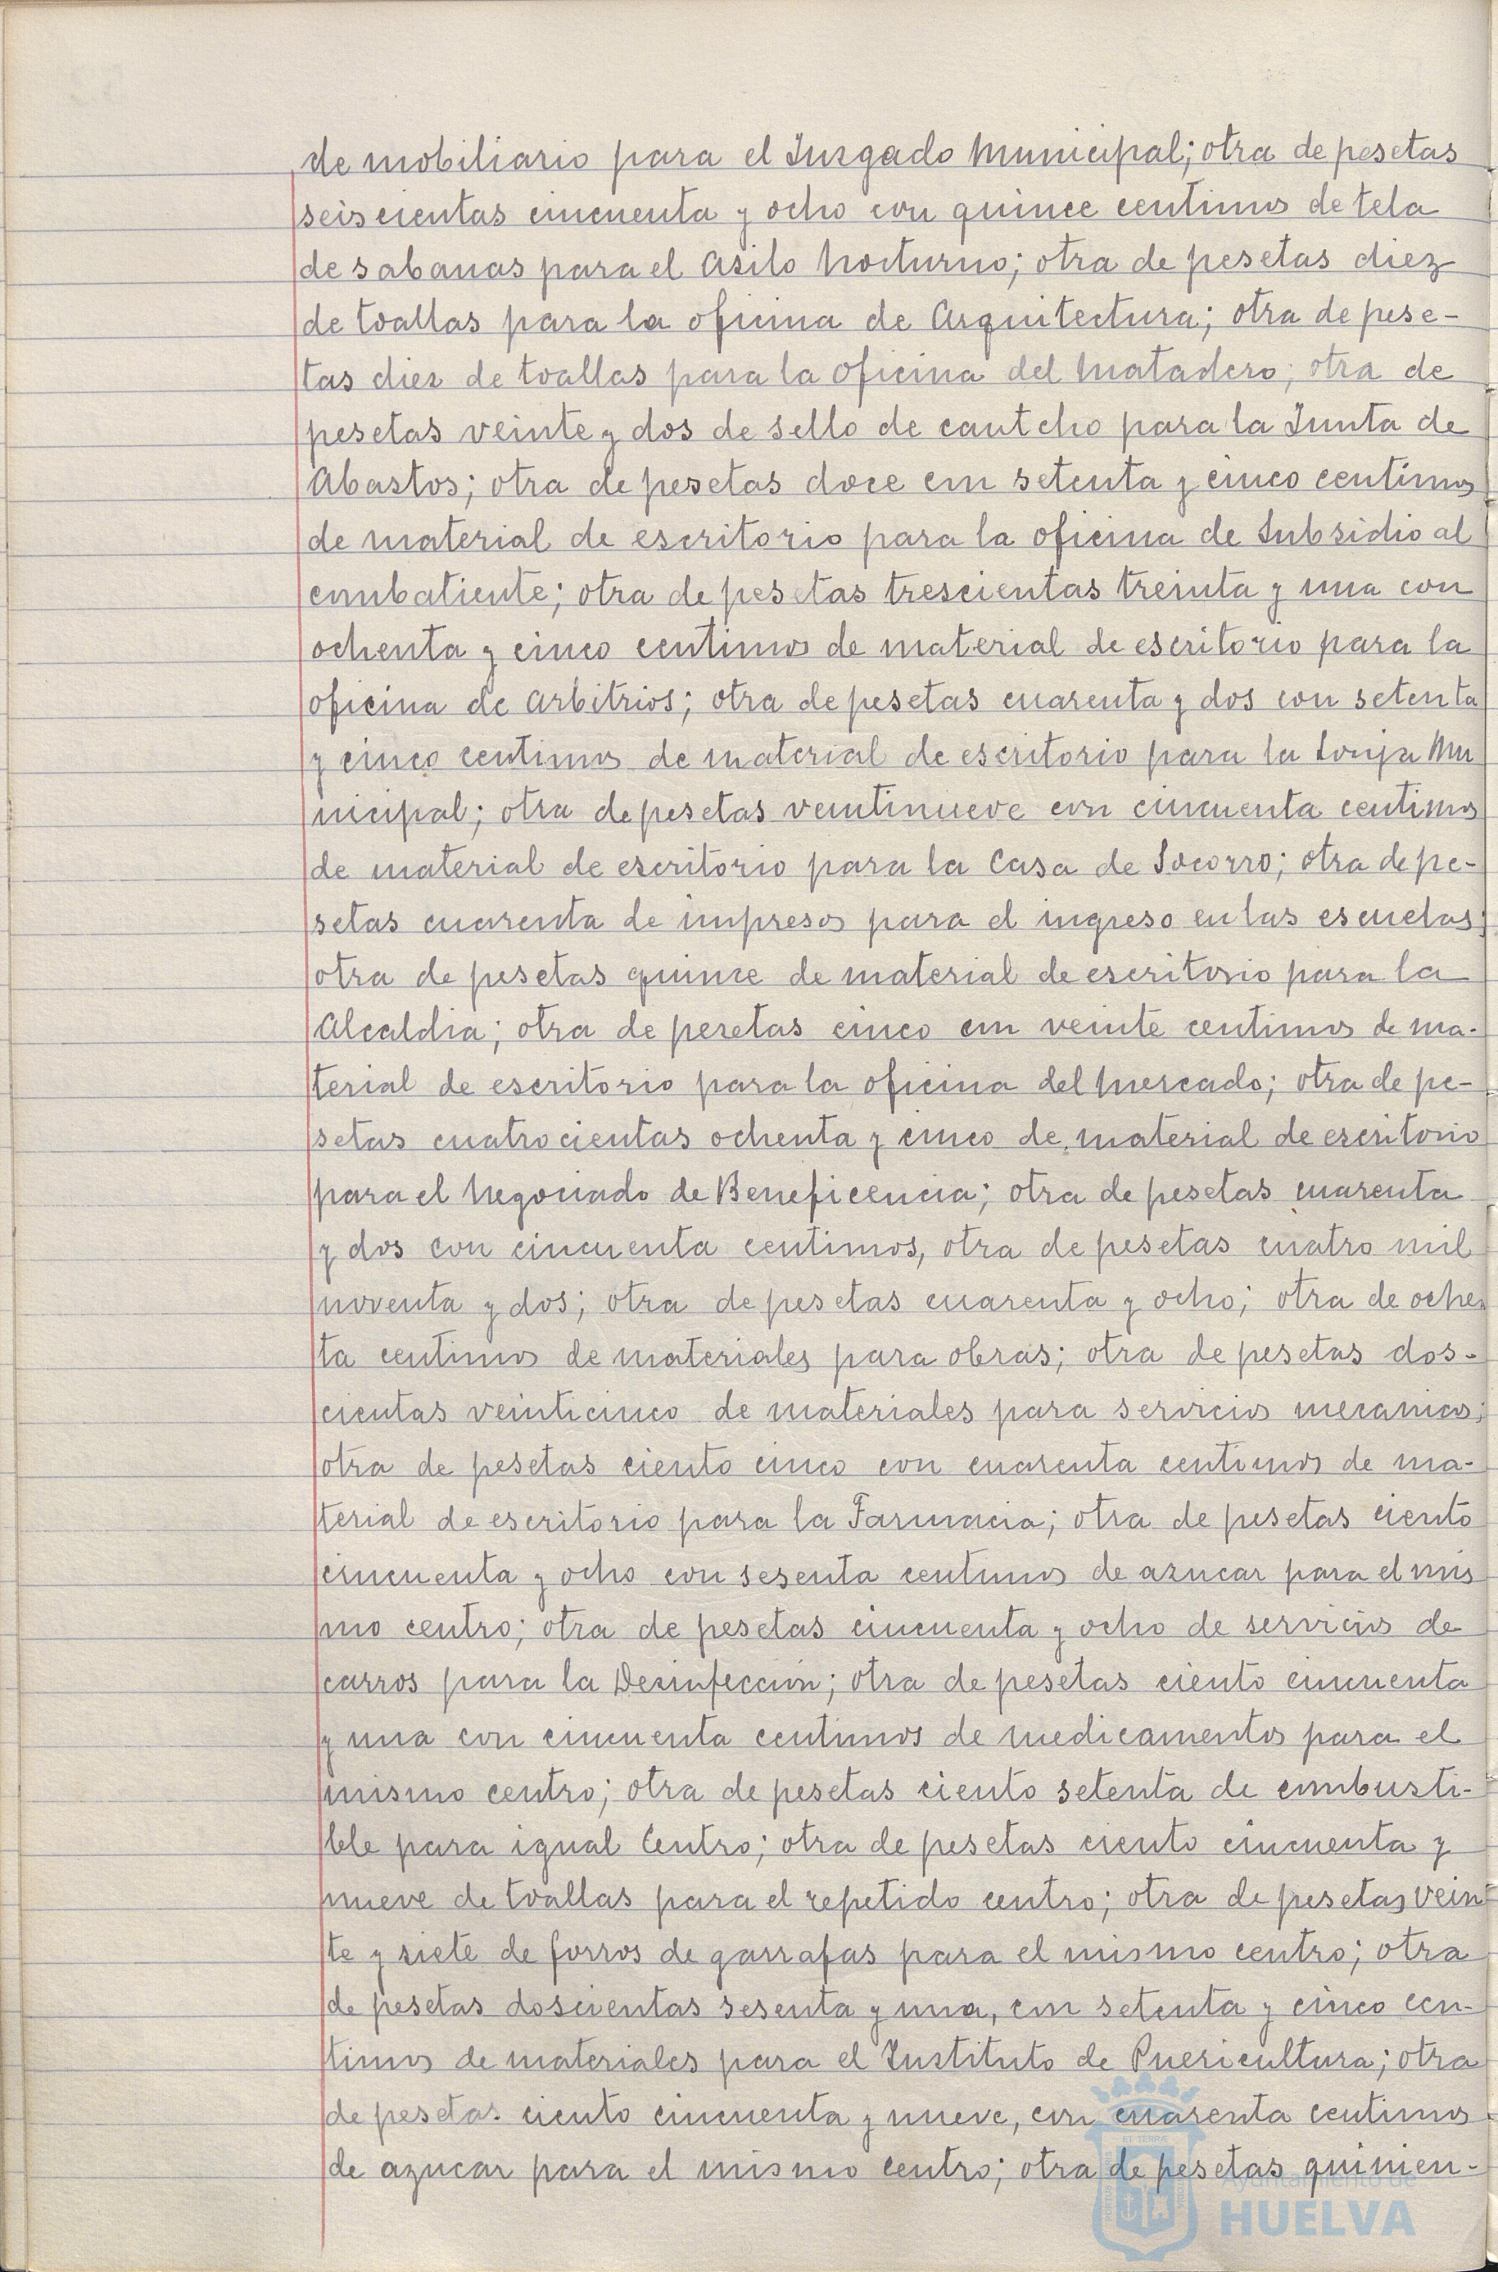 de mobiliario para el Juzgado Municipal; otra de pesetas
seiscientas cincuenta y ocho con quince centimos de tela
de sabanas para el Asilo Nocturno; otra de pesetas diez
de toallas para la oficina de Arquitectura; otra de pese-
tas diez de toallas para la oficina del Matadero; otra de
pesetas veinte y dos de sello de cautcho para la Junta de
Abastos; otra de pesetas doce con setenta y cinco centimos
de material de escritorio para la oficina de Subsidio al
combatiente; otra de pesetas trescientas treinta y una con
ochenta y cinco centimos de material de escritorio para la
oficina de Arbitrios; otra de pesetas cuarenta y dos con setenta
y cinco centimos de material de escritorio para la Lonja Mu
nicipal; otra de pesetas veintinueve con cincuenta centimos
de material de escritorio para la Casa de Socorro; otra de pe-
setas cuarenta de impresos para el ingreso en las escuelas;
otra de pesetas quince de material de escritorio para la
Alcaldia; otra de pesetas cinco con veinte centimos de ma-
terial de escritorio para la oficina del Mercado; otra de pe-
setas cuatrocientas ochenta y cinco de material de escritorio
para el Negociado de Beneficencia; otra de pesetas cuarenta
y dos con cincuenta centimos, otra de pesetas cuatro mil
noventa y dos; otra de pesetas cuarenta y ocho; otra de ochen
ta centimos de materiales para obras; otra de pesetas dos-
cientas veinticinco de materiales para servicios mecanicos;
otra de pesetas ciento cinco con cuarenta centimos de ma-
terial de escritorio para la Farmacia; otra de pesetas ciento
cincuenta y ocho con sesenta centimos de azucar para el mis
mo centro; otra de pesetas cincuenta y ocho de servicios de
carros para la Desinfección; otra de pesetas ciento cincuenta
y una con cincuenta centimos de medicamentos para el
mismo centro; otra de pesetas ciento setenta de combusti-
ble para igual Centro; otra de pesetas ciento cincuenta y
nueve de toallas para el repetido centro; otra de pesetas vein
te y siete de forros de garrafas para el mismo centro; otra
de pesetas doscientas sesenta y una, con setenta y cinco cen-
timos de materiales para el Instituto de Puericultura; otra
de pesetas ciento cincuenta y nueve, con cuarenta centimos
de azucar para el mismo centro; otra de pesetas quinien-
Ayuntamiento de
HUELVA